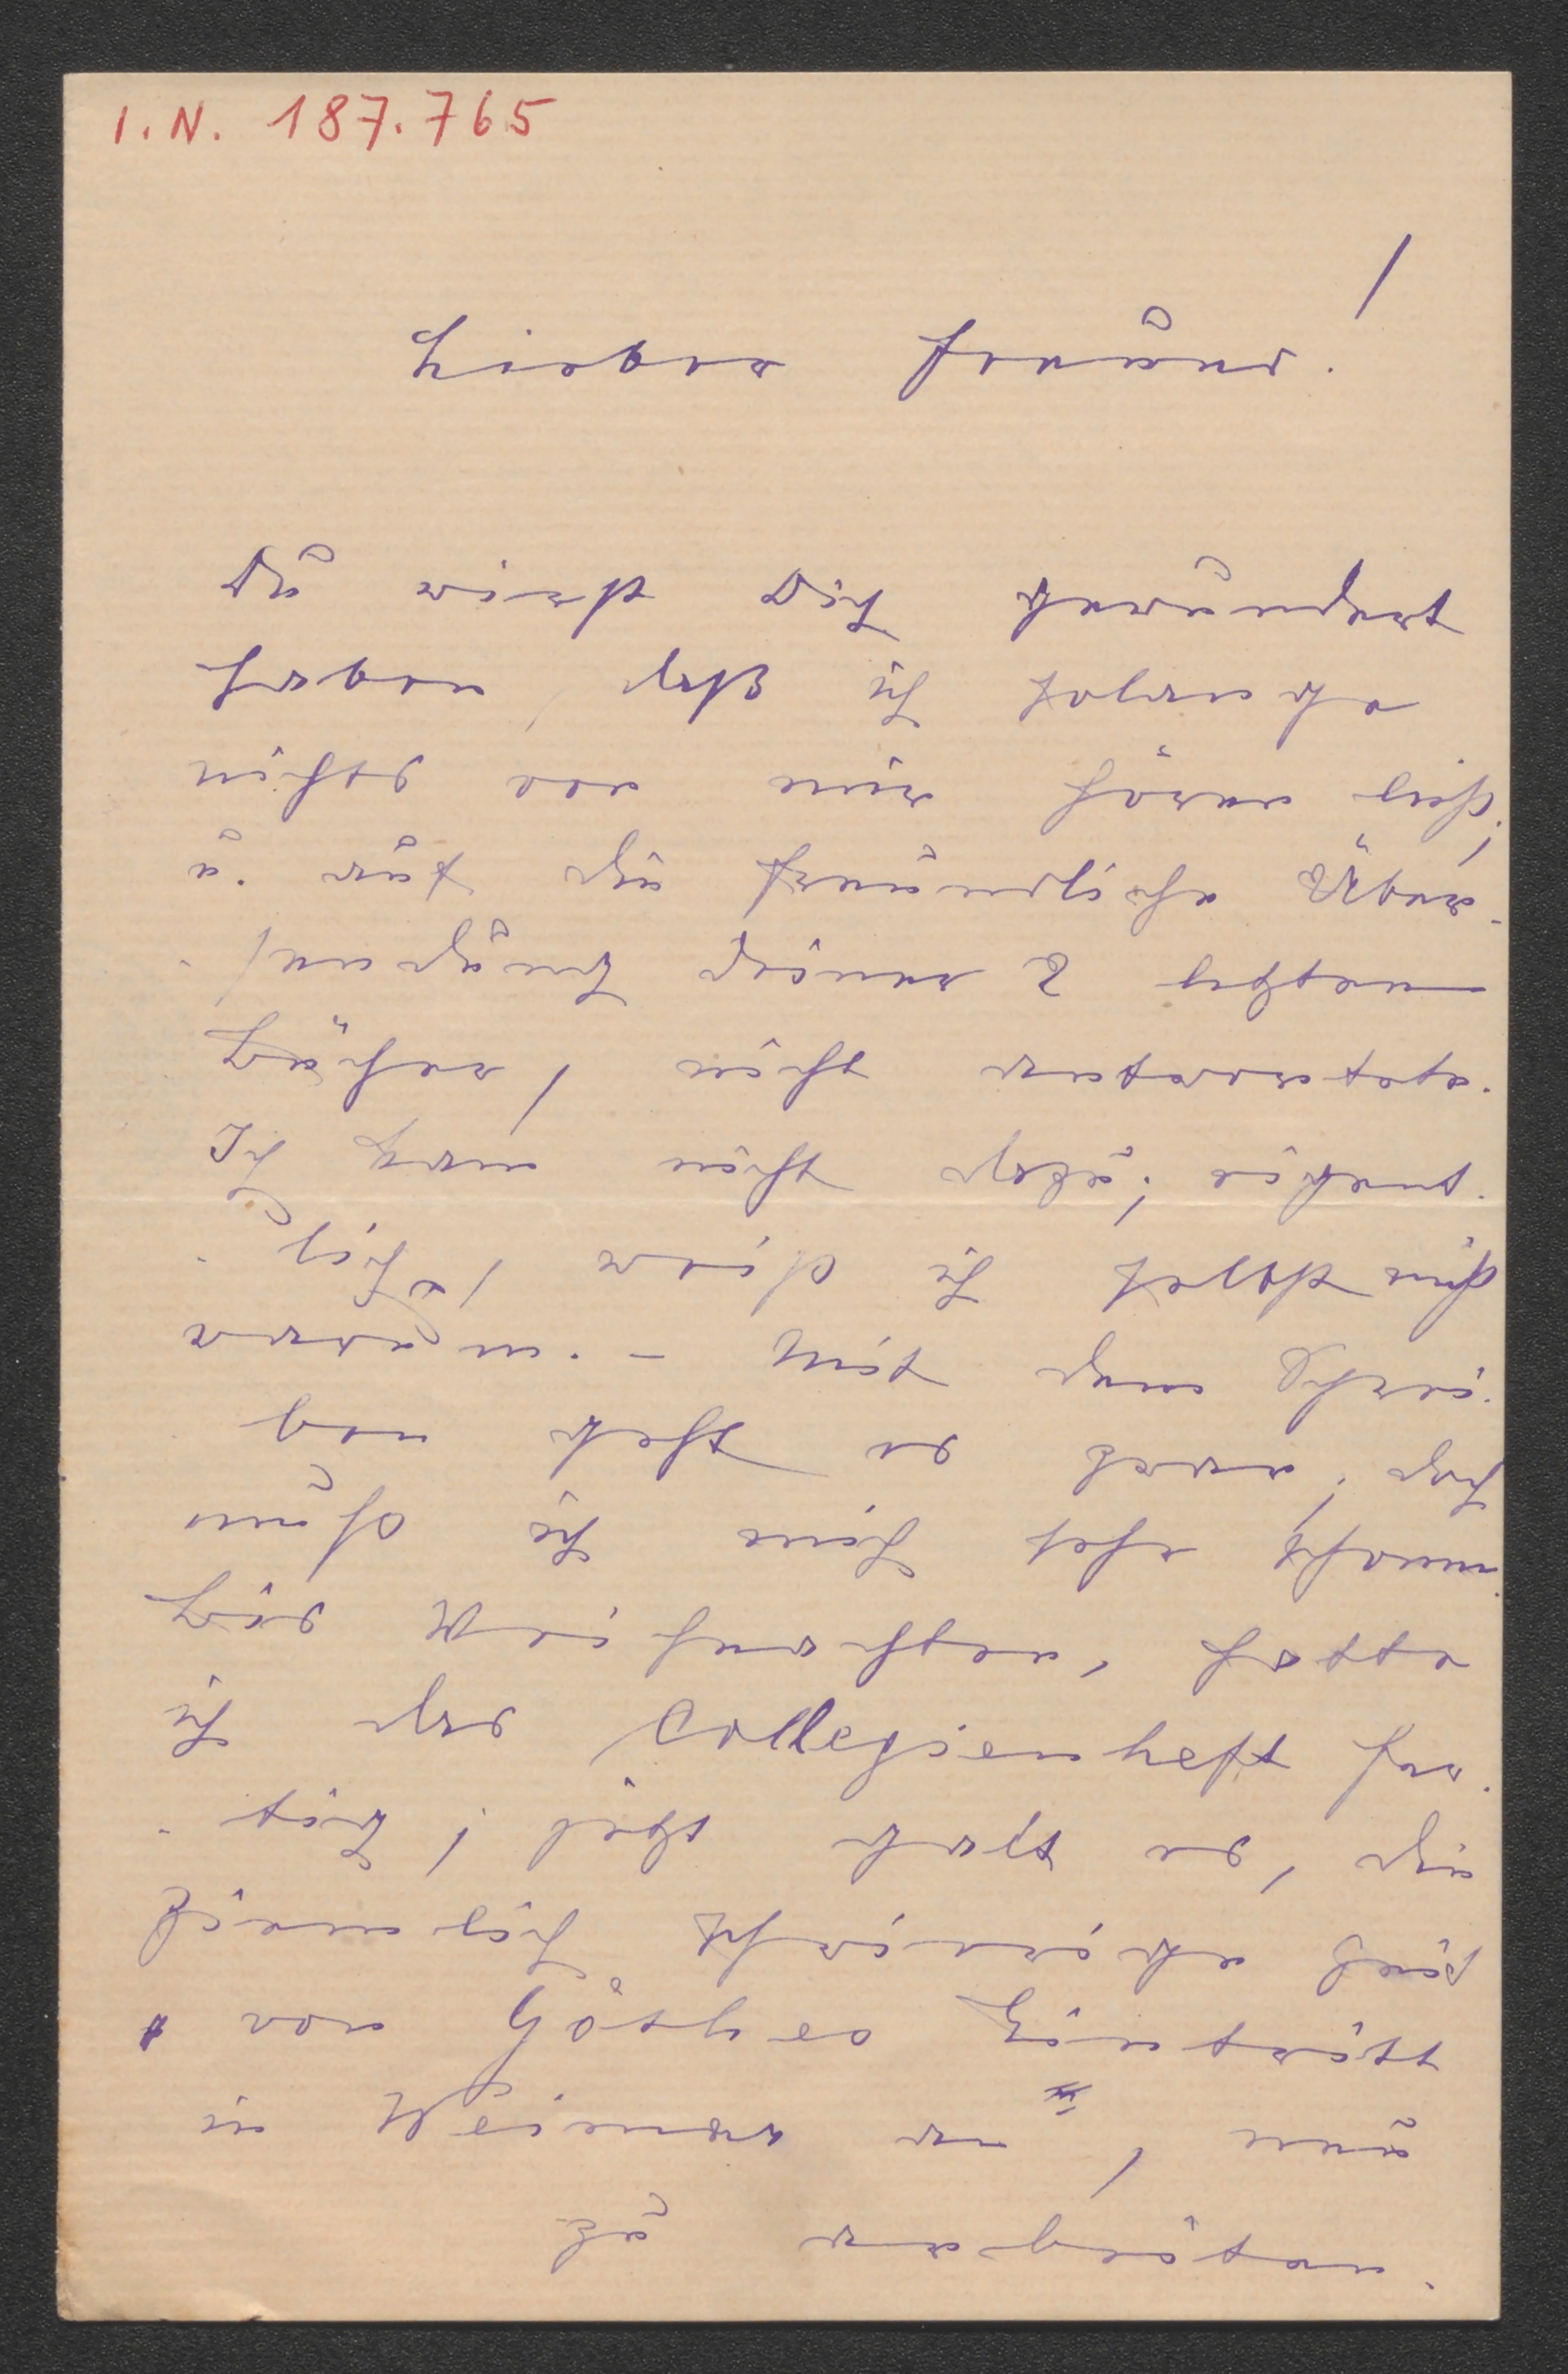 I. N. 187.765
Lieber Freund!
Du wirst Dich gewundert
haben, daß ich solange
nichts von mir hören ließ,
u. auf die freundliche Über-
-sendung deiner 2 letzten
Bücher, nicht antwortete.
Ich kam nicht dazu; eigent-
-lich, weiß ich selbst nicht
warum. – Mit dem Schrei-
ben geht es zwar; doch
muß ich mich sehr schonen.
Bis Weihnachten, hatte
ich das Collegienheft fer-
-tig; jetzt galt es, die
ziemlich schwierige Zeit
von Göthes Eintritt
in Weimar an, neu
zu arbeiten.